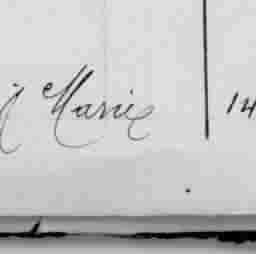 Marie 14